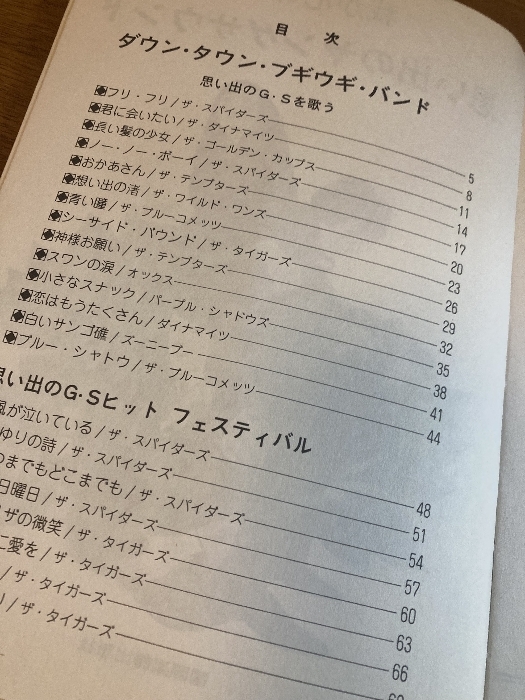 目 次
ダウン・タウン・ブギウギ・バンド
思い出のG・Sを歌う
フリ・フリ/ザ・スパイダーズ 5
君に会いたい/ザ・ダイナマイツ 8
長い髪の少女/ザ・ゴールデン・カップス 11
ノー・ノー・ボーイ/ザ・スパイダーズ 14
おかあさん/ザ・テンプターズ 17
想い出の渚/ザ・ワイルド・ワンズ 20
青い瞳/ザ・ブルーコメッツ 23
シーサイド・バウンド/ザ・タイガーズ 26
神様お願い/ザ・テンプターズ 29
スワンの涙/オックス 32
小さなスナック/パープル・シャドウズ 35
恋はもうたくさん/ダイナマイツ 38
白いサンゴ礁/ズーニーブー 41
ブルー・シャトウ/ザ・ブルーコメッツ 44
思い出のG・Sヒット フェスティバル
風が泣いている/ザ・スパイダーズ 48
ゆりの詩/ザ・スパイダーズ 51
つまでもどこまでも/ザ・スパイダーズ 54
日曜日/ザ・スパイダーズ 57
ザの微笑/ザ・タイガーズ 60
に愛を/ザ・タイガーズ 63
/ザ・タイガーズ 66
/ザ・タイガーズ